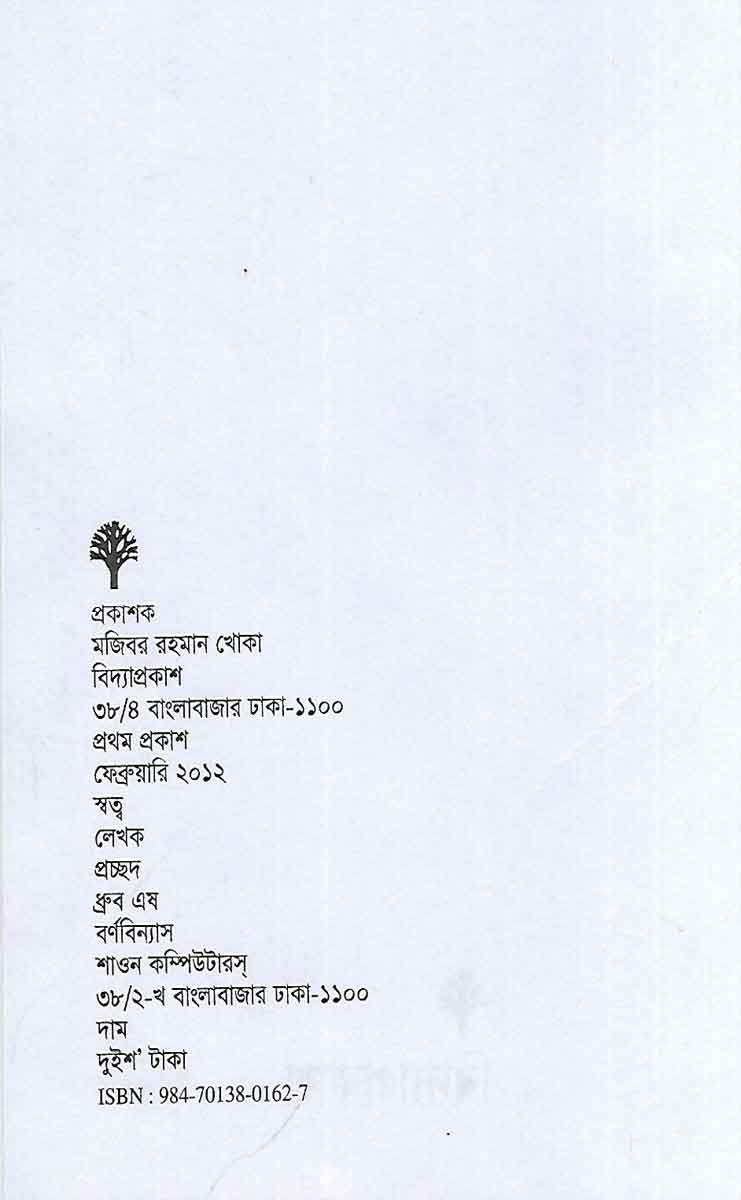 প্রকাশক
মজিবর রহমান খোকা
বিদ্যাপ্রকাশ
৩৮/৪ বাংলাবাজার ঢাকা-১১০০
প্রথম প্রকাশ
ফেব্রুয়ারি ২০১২
স্বত্ব
লেখক
প্রচ্ছদ
ধ্রুব এষ
বর্ণবিন্যাস
শাওন কম্পিউটারস্
৩৮/২-খ বাংলাবাজার ঢাকা-১১০০
দাম
দুইশ’ টাকা
ISBN : 984-70138-0162-7
বিদ্যাপ্রকাশ